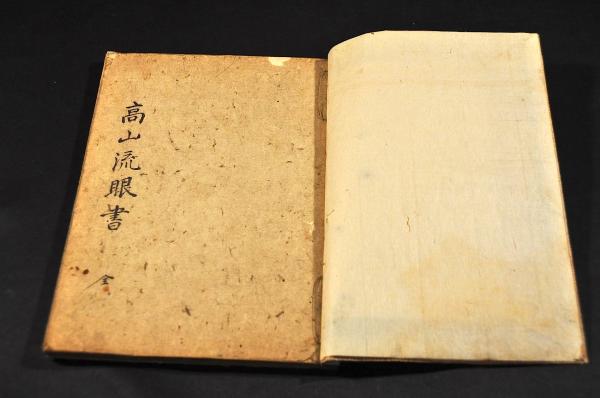 高山流眼書
全